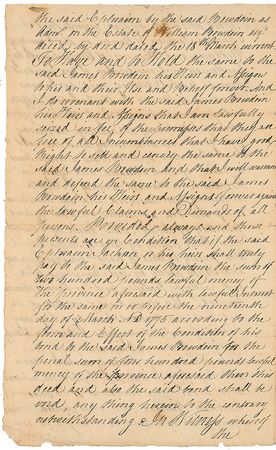 the said Ephraim by the said Bowdoin as
Admr on the Estate of William Bowdoin esqr
deced, by deed dated the 18th March current
To Have and to Hold the same to the
said James Bowdoin his Heirs and Assigns
to his and their Use and Behoof forever. And
I do covenant with the said James Bowdoin
his Heirs and Assigns that I am lawfully
seized in fee of the premises that they are
free of all incumbrances that I have good
Right to sell and convey the same to the
said James Bowdoin and that I will warrant
and defend the same to the said James
Bowdoin his Heirs and Assigns forever against
the lawful Claims and Demands of all
Persons. Provided always and these
presents are on Condition that if the said
Ephraim Jackson or his heirs shall only
pay to the said James Bowdoin the sum of
two hundred pounds lawful money of
the province aforesaid with lawful interest
for the same on or before the nineteenth
day of March A.D. 1775 according to the
form and Effect of the Condition of his
bond to the said James Bowdoin for the
penal sum of four hundred pounds lawful
money of the province aforesaid then this
deed and also the said bond shall be
void, any thing herein to the contrary
notwithstanding. In Witness whereof
the